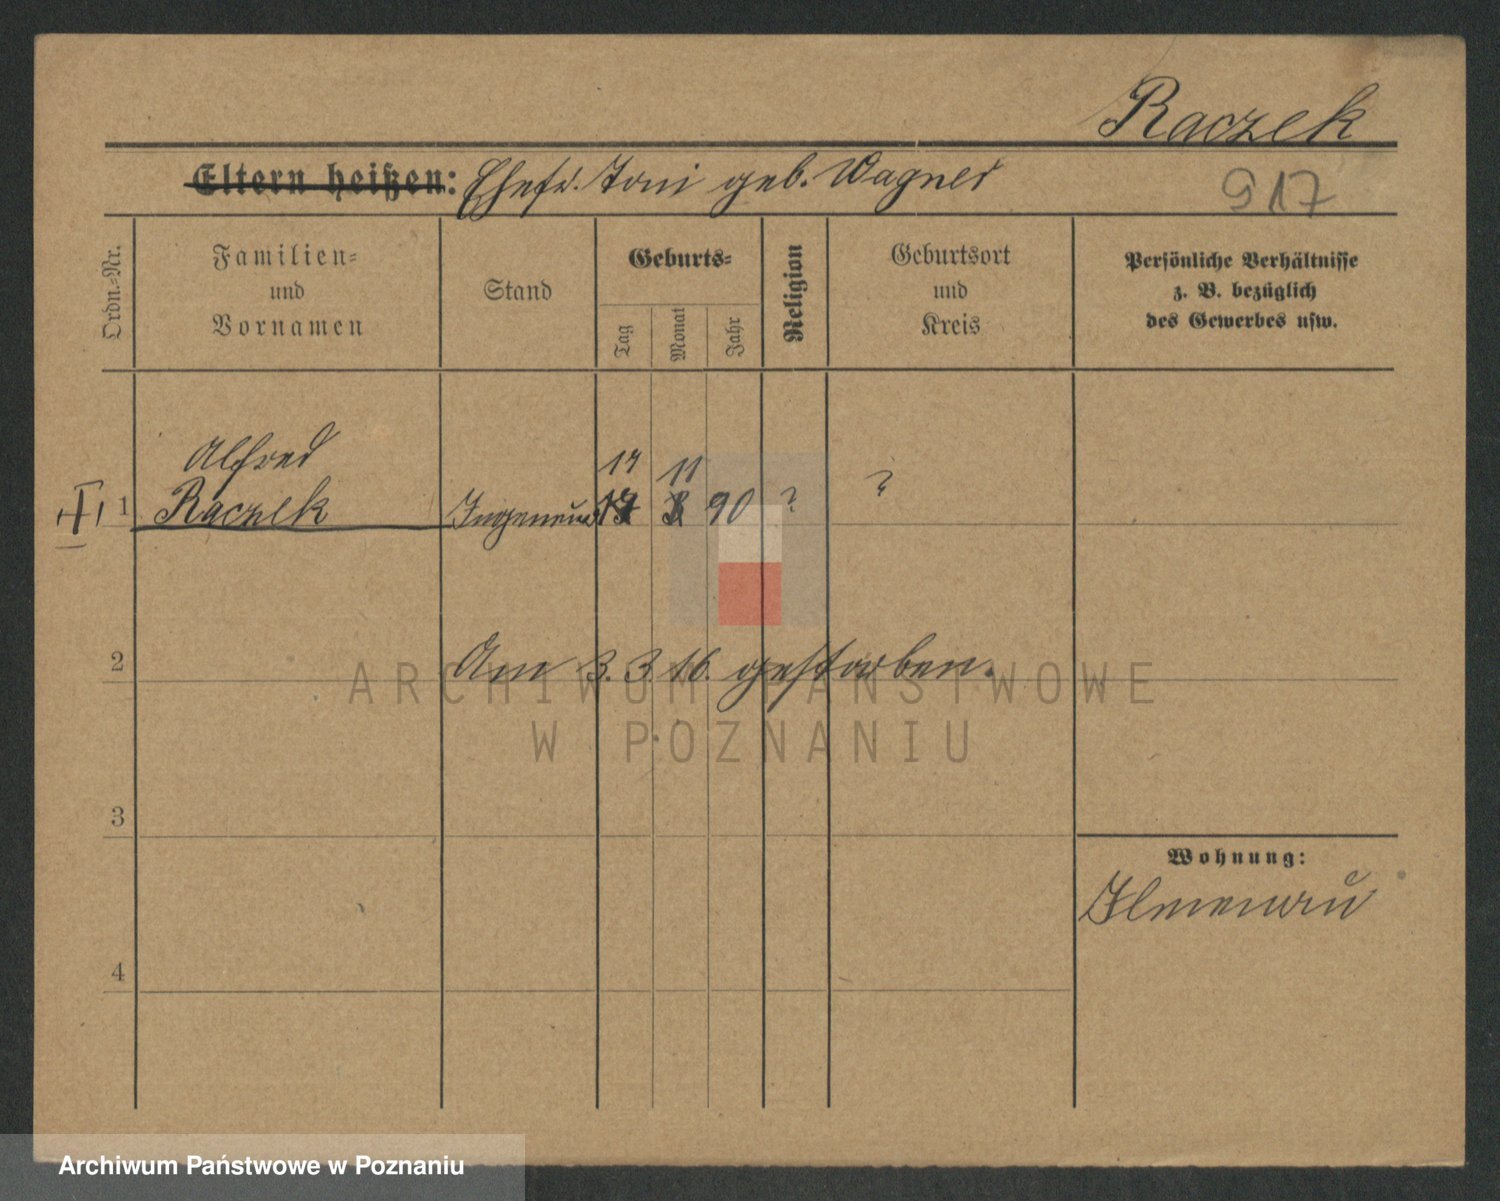 Raczek
Eltern heißen: Ehefr. Toni geb. Wagner
917
Ordn.-Nr.
Familien-
und
Vornamen
Stand
Geburts-
Tag
Monat
Jahr
Religion
Geburtsort
und
Kreis
Persönliche Verhältnisse
z. B. bezüglich
des Gewerbes usw.
Alfred
11
1 Raczek Ingenieur 90 ? ?
2 Am 3. 3. 16. gestorben.
ARCHIWUM PAŃSTWOWE
W POZNANIU
3
Wohnung:
Ilmenau
4
Archiwum Państwowe w Poznaniu